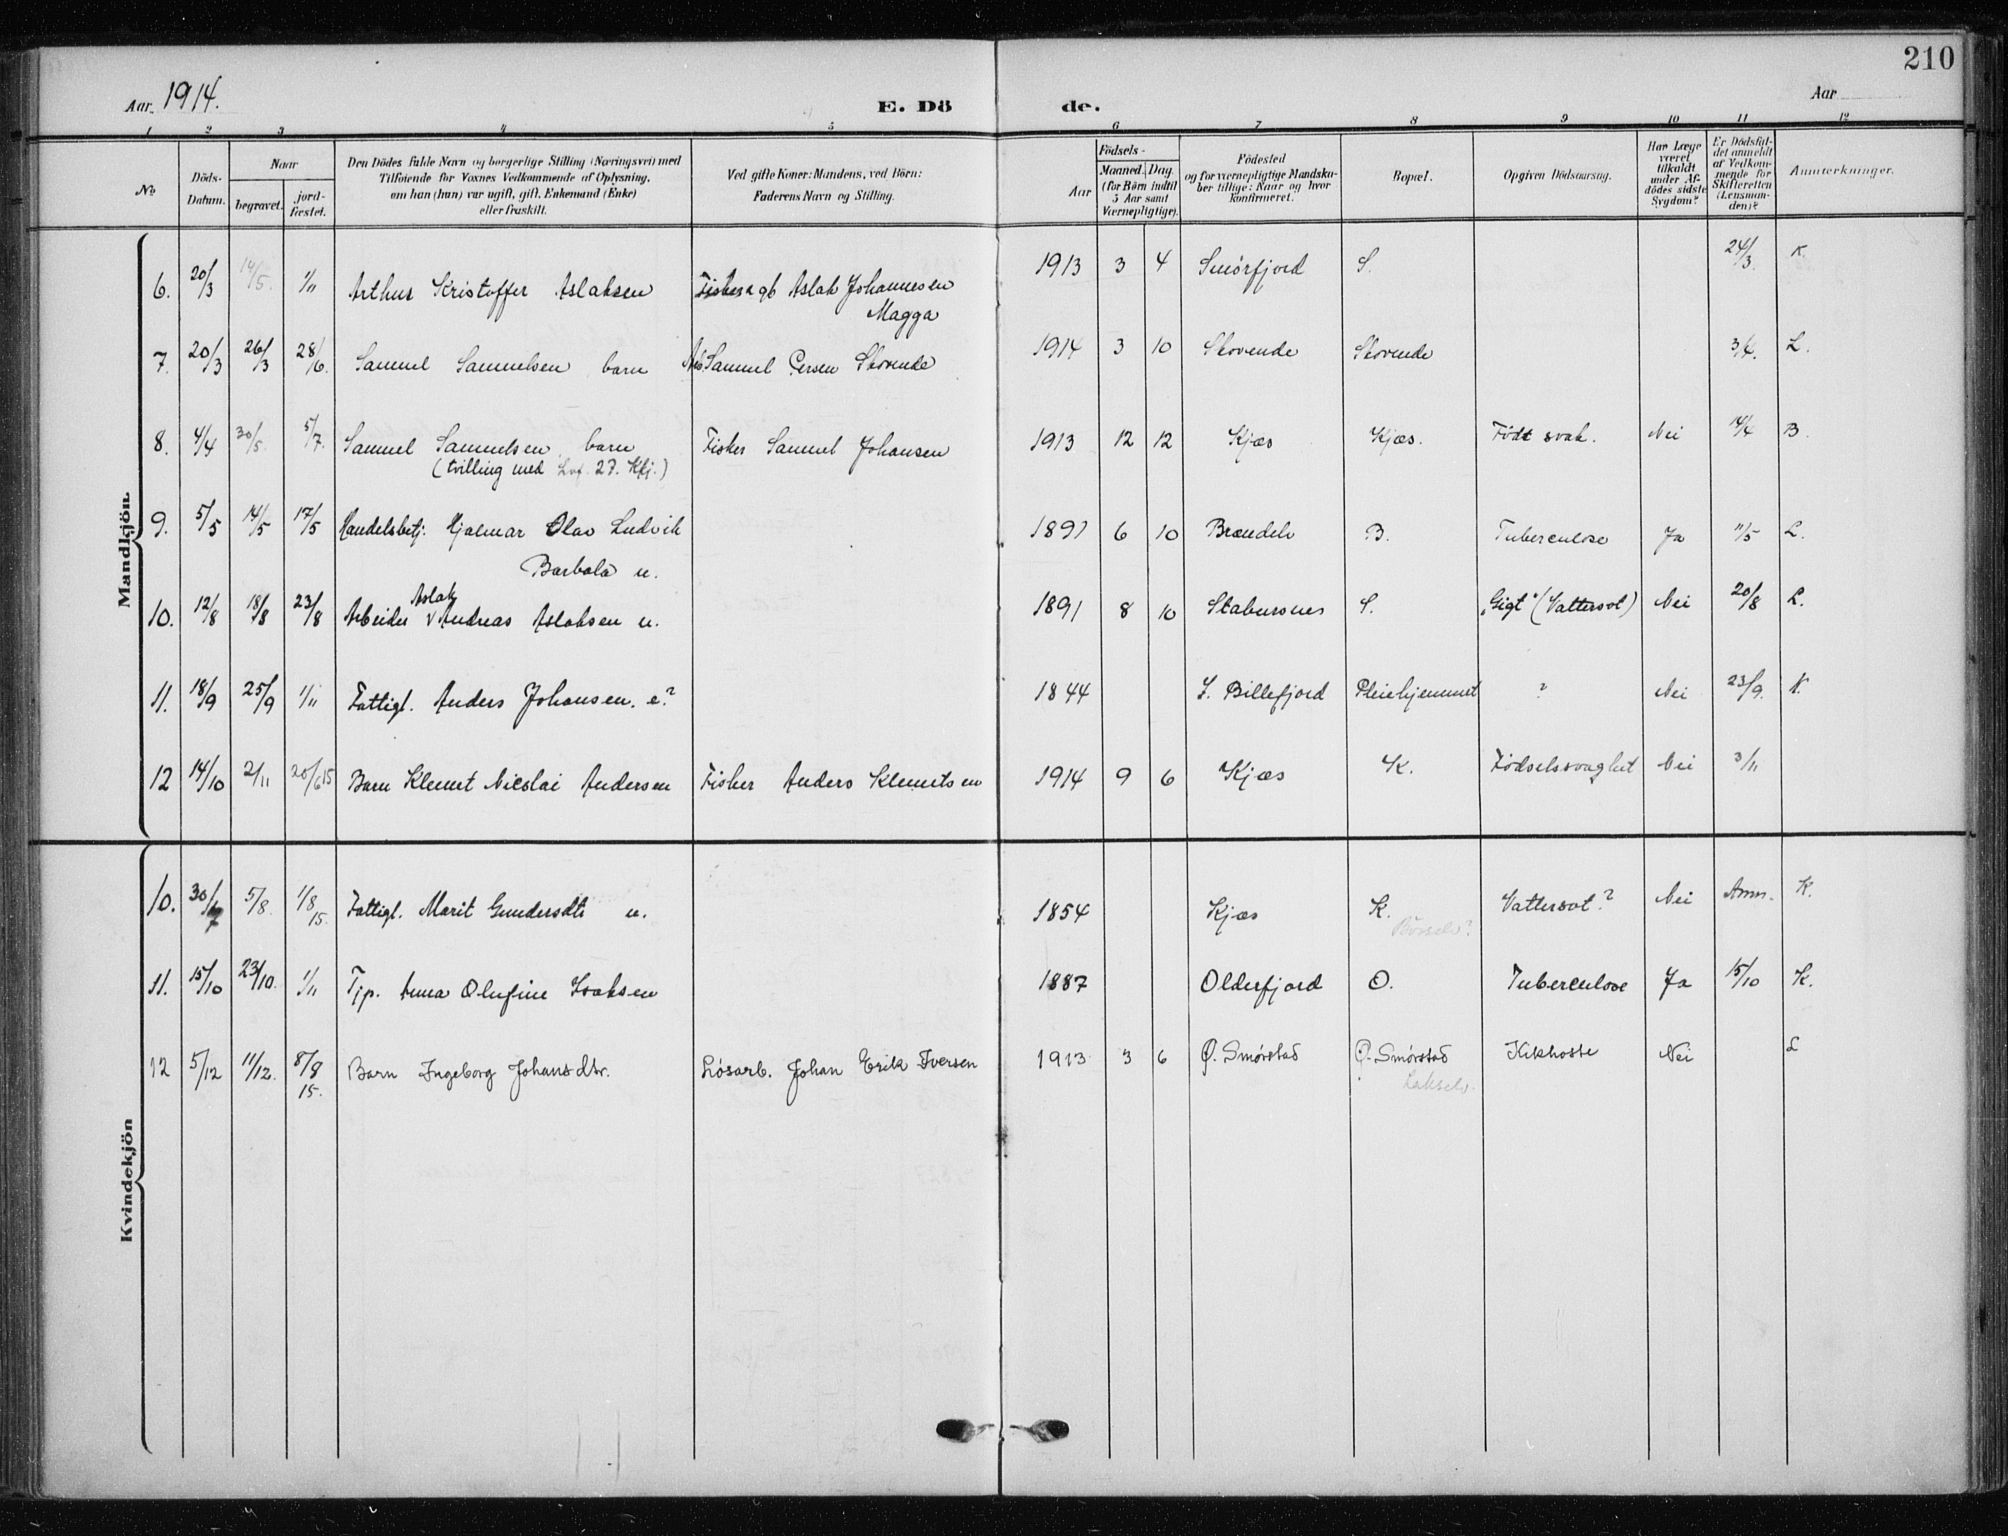 210
Aar 1914.
E. Dö de.
Aar
1 2 3 4 5 6 7 8 9 10 11 12
No
Döds-Datum.
Naar
begravet.
jord-fæstet.
Den Dödes fulde Navn og borgerlige Stilling (Næringsvei) med
Tilföiende for Voxnes Vedkommende af Oplysning,
om han (hun) var ugift, gift, Enkemand (Enke)
eller fraskilt.
Ved gifte Koner: Mandens, ved Börn:
Faderens Navn og Stilling.
Födsels-
Aar
Maaned. Dag.
(for Börn indtil
5 Aar samt
Værnepligtige).
Födested
og for værnepligtige Mandska-
ber tillige: Naar og hvor
konfirmeret.
Bopæl.
Opgiven Dödsaarsag.
Har Læge
været
tilkaldt
under Af-
dödes sidste
Sygdom?
Er Dödsfal-
det anmeldt
af Vedkom-
mende for
Skifteretten
(Lensman-
den)?
Anmerkninger.
Mandkjön.
6. 20/3 14/5. 1/11 Arthur Kristoffer Aslaksen Fisker & gb Aslak Johannesen 1913 3 4 Smörfjord S. 24/3. K.
Magga
7. 20/3 26/3 28/6. Samuel Samuelsen barn Samuel Persen Skovende 1914 3 10 Skovende Skovende 3/4. L.
8. 4/4 30/5. 5/7. Samuel Samuelsen barn Fisker Samuel Johansen 1913 12 12 Kjæs Kjæs. Födt svak. Nei 14/4 B.
(tvilling med 27. Kfj.)
9. 5/5 14/5 17/5 Handelsbetj. Hjalmar Olav Ludvik 1891 6 10 Brændelv B. Tuberculose Ja 11/5 L.
Barbala u.
Aslak
10. 12/8 18/8 23/8 Arbeider v Andreas Aslaksen u. 1891 8 10 Stabursnes S. "Gigt" (Vattersot) Nei 20/8 L.
11. 18/9 25/9 1/11 Fattigl. Anders Johansen. e? 1844 L. Billefjord Pleiehjemmet ? Nei 23/9. K.
12 14/10 2/11 20/6 15 Barn Klemet Nicolai Andersen Fisker Anders Klemetsen 1914 9 6 Kjæs K. Födselssvaghet Nei 3/11
Kvindekjön
10. 30/7 5/8. 1/8 15. Fattigl. Marit Gundersdtr u. 1854 Kjæs K. Vattersot? Nei Anm. K.
Börselv?
11. 15/10 23/10. 1/11 Tjp. Anna Olufine Isaksen 1887 Olderfjord O. Tuberculose Ja 15/10 K.
12 5/12 11/12. 8/8 15. Barn Ingeborg Johansdtr. Lösarb. Johan Erik Iversen 1913 3 6 Ø. Smörstad Ø. Smörstad Kikhoste Nei L
Lakselv.